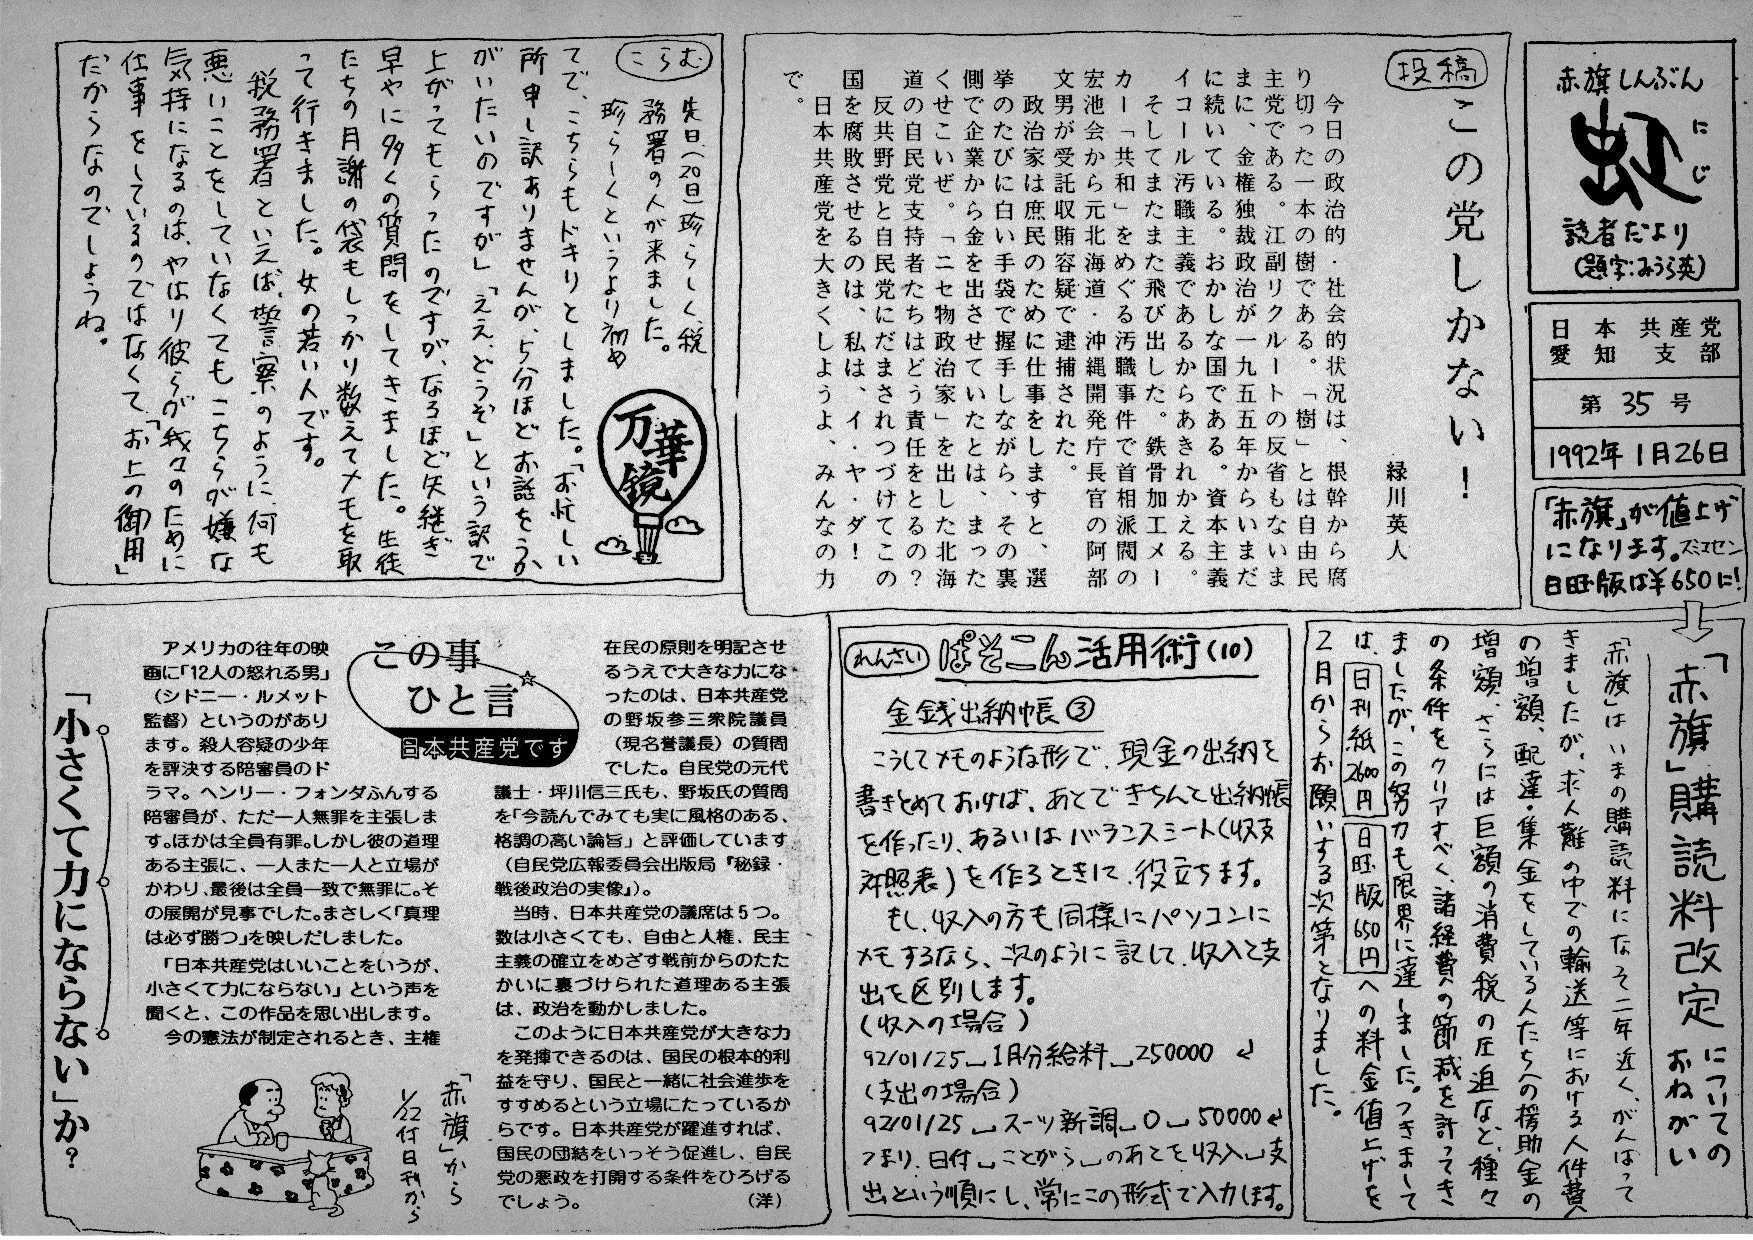 赤旗しんぶん
虹
にじ
読者だより
(題字:みうら英)
日本共産党
愛知支部
第35号
1992年1月26日
「赤旗」が値上げ
になります。スミマセン
日曜版は¥650に!
投稿
この党しかない!
緑川英人
今日の政治的・社会的状況は、根幹から腐
り切った一本の樹である。「樹」とは自由民
主党である。江副リクルートの反省もないま
まに、金権独裁政治が一九五五年からいまだ
に続いている。おかしな国である。資本主義
イコール汚職主義であるからあきれかえる。
そしてまたまた飛び出した。鉄骨加工メー
カー「共和」をめぐる汚職事件で首相派閥の
宏池会から元北海道・沖縄開発庁長官の阿部
文男が受託収賄容疑で逮捕された。
政治家は庶民のために仕事をしますと、選
挙のたびに白い手袋で握手しながら、その裏
側で企業から金を出させていたとは、まった
くせこいぜ。「ニセ物政治家」を出した北海
道の自民党支持者たちはどう責任をとるの?
反共野党と自民党にだまされつづけてこの
国を腐敗させるのは、私は、イ・ヤ・ダ!
日本共産党を大きくしようよ、みんなの力
で。
こらむ
万華鏡
先日(20日)珍らしく、税
務署の人が来ました。
珍らしくというより初め
てで、こちらもドキリとしました。「お忙しい
所申し訳ありませんが、5分ほどお話をうか
がいたいのですが」「ええ、どうぞ」という訳で
上がってもらったのですが、なるほど矢継ぎ
早やに多くの質問をしてきました。生徒
たちの月謝の袋もしっかり数えてメモを取
って行きました。女の若い人です。
税務署といえば、警察のように何も
悪いことをしていなくてもこちらが嫌な
気持になるのは、やはり彼らが我々のために
仕事をしているのではなくて、「お上の御用」
だからなのでしょうね。
「赤旗」購読料改定についてのおねがい
「赤旗」はいまの購読料になって二年近く、がんばって
きましたが、求人難の中での輸送等における人件費
の増額、配達・集金をしている人たちへの援助金の
増額、さらには巨額の消費税の圧迫など、種々
の条件をクリアすべく、諸経費の節減を計ってき
ましたが、この努力も限界に達しました。つきまして
は、日刊紙2600円 日曜版650円への料金値上げを
2月からお願いする次第となりました。
れんさい ぱそこん活用術(10)
金銭出納帳③
こうしてメモのような形で、現金の出納を
書きとめておけば、あとできちんと出納帳
を作ったり、あるいはバランスシート(収支
対照表)を作るときに、役立ちます。
もし、収入の方も同様にパソコンに
メモするなら、次のように記して、収入と支
出を区別します。
(収入の場合)
92/01/25␣1月分給料␣250000 ↵
(支出の場合)
92/01/25␣スーツ新調␣0␣50000↵
つまり、日付␣ことがら␣のあとを収入␣支
出という順にし、常にこの形式で入力します。
「小さくて力にならない」か?
この事
ひと言☆
日本共産党です
アメリカの往年の映
画に「12人の怒れる男」
(シドニー・ルメット
監督)というのがあり
ます。殺人容疑の少年
を評決する陪審員のド
ラマ。ヘンリー・フォンダふんする
陪審員が、ただ一人無罪を主張しま
す。ほかは全員有罪。しかし彼の道理
ある主張に、一人また一人と立場が
かわり、最後は全員一致で無罪に。そ
の展開が見事でした。まさしく「真理
は必ず勝つ」を映しだしました。
「日本共産党はいいことをいうが、
小さくて力にならない」という声を
聞くと、この作品を思い出します。
今の憲法が制定されるとき、主権
在民の原則を明記させ
るうえで大きな力にな
ったのは、日本共産党
の野坂参三衆院議員
(現名誉議長)の質問
でした。自民党の元代
議士・坪川信三氏も、野坂氏の質問
を「今読んでみても実に風格のある、
格調の高い論旨」と評価しています
(自民党広報委員会出版局『秘録・
戦後政治の実像』)。
当時、日本共産党の議席は5つ。
数は小さくても、自由と人権、民主
主義の確立をめざす戦前からのたた
かいに裏づけられた道理ある主張
は、政治を動かしました。
このように日本共産党が大きな力
を発揮できるのは、国民の根本的利
益を守り、国民と一緒に社会進歩を
すすめるという立場にたっているか
らです。日本共産党が躍進すれば、
国民の団結をいっそう促進し、自民
党の悪政を打開する条件をひろげる
でしょう。 (洋)
「赤旗」から
1/22付日刊から